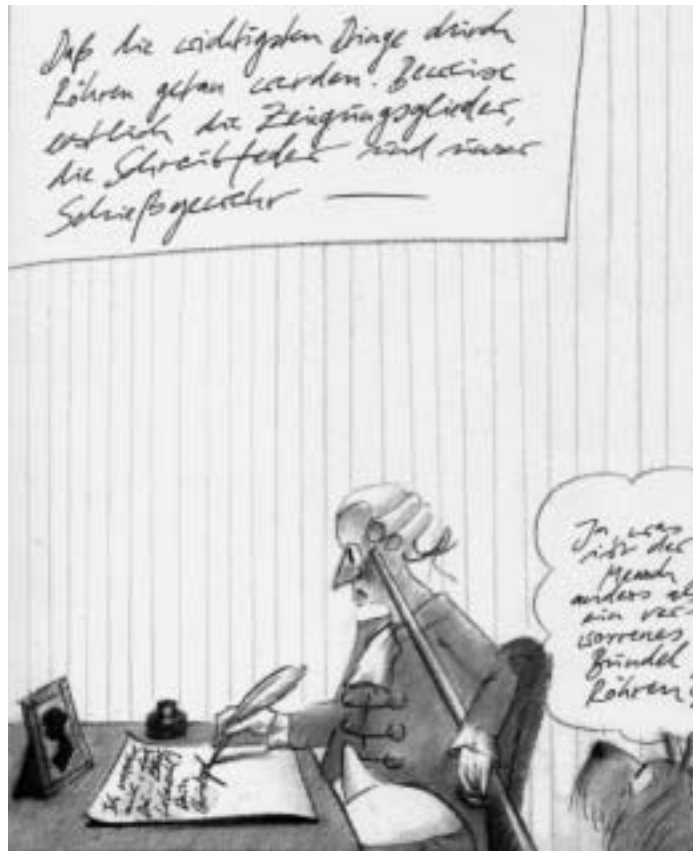 Daß die wichtigsten Dinge durch
Röhren getan werden. Beweise
erstlich die Zeugungsglieder,
die Schreibfeder und unser
Schießgewehr —
Ja was
ist der
Mensch
anders als
ein ver-
worrenes
Bündel
Röhren?